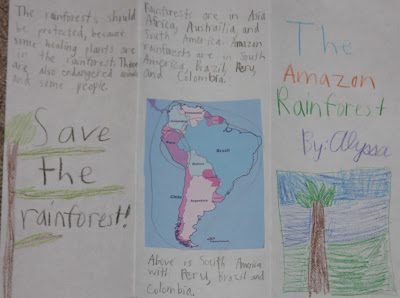 The rainforests should
be protected, because
some healing plants are
in the rainforest. There
are also endangered animals
and some people.
Save
the
rainforest!
Rainforests are in Asia
Africa, Austrailia, and
South America. Amazon
rainforests are in South
America, Brazil, Peru,
and Colombia.
Brazil
Peru
Bolivia
Chile
Argentina
Above is South America
with Peru, Brazil and
Colombia.
The
Amazon
Rainforest
By: Alyssa